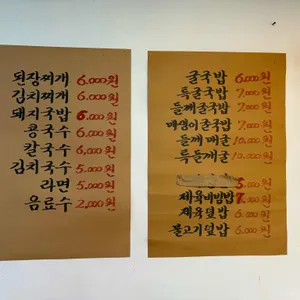 된장찌개 6.000원
김치찌개 6.000원
돼지국밥 6.000원
콩국수 6.000원
칼국수 6,000원
김치국수 5.000원
라면 5.000원
음료수 2,000원
굴국밥 6.000원
특굴국밥 7.000원
들깨굴국밥 7.000원
매생이굴국밥 7.000원
들깨매굴 10.000원
특들깨굴
5.000원
제육비빔밥 7.000원
제육덮밥 6.000원
불고기덮밥 6.000원